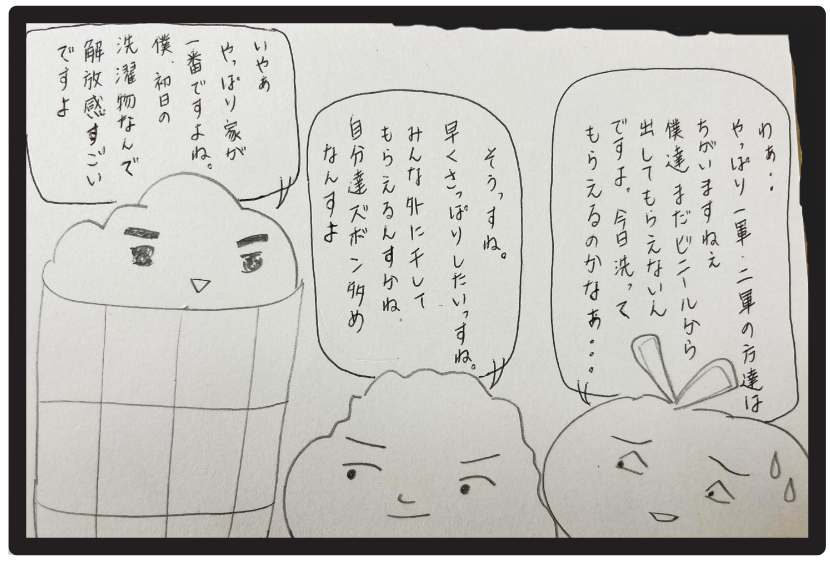 わぁ‥
やっぱり一軍・二軍の方達は
ちがいますねぇ
僕達まだビニールから
出してもらえないん
ですよ。今日洗って
もらえるのかなぁ…
そうっすね。
早くさっぱりしたいっすね。
みんな外に干して
もらえるんすかね.
自分達ズボン多め
なんすよ
いやぁ
やっぱり家が
一番ですよね。
僕、初日の
洗濯物なんで
解放感すごい
ですよ